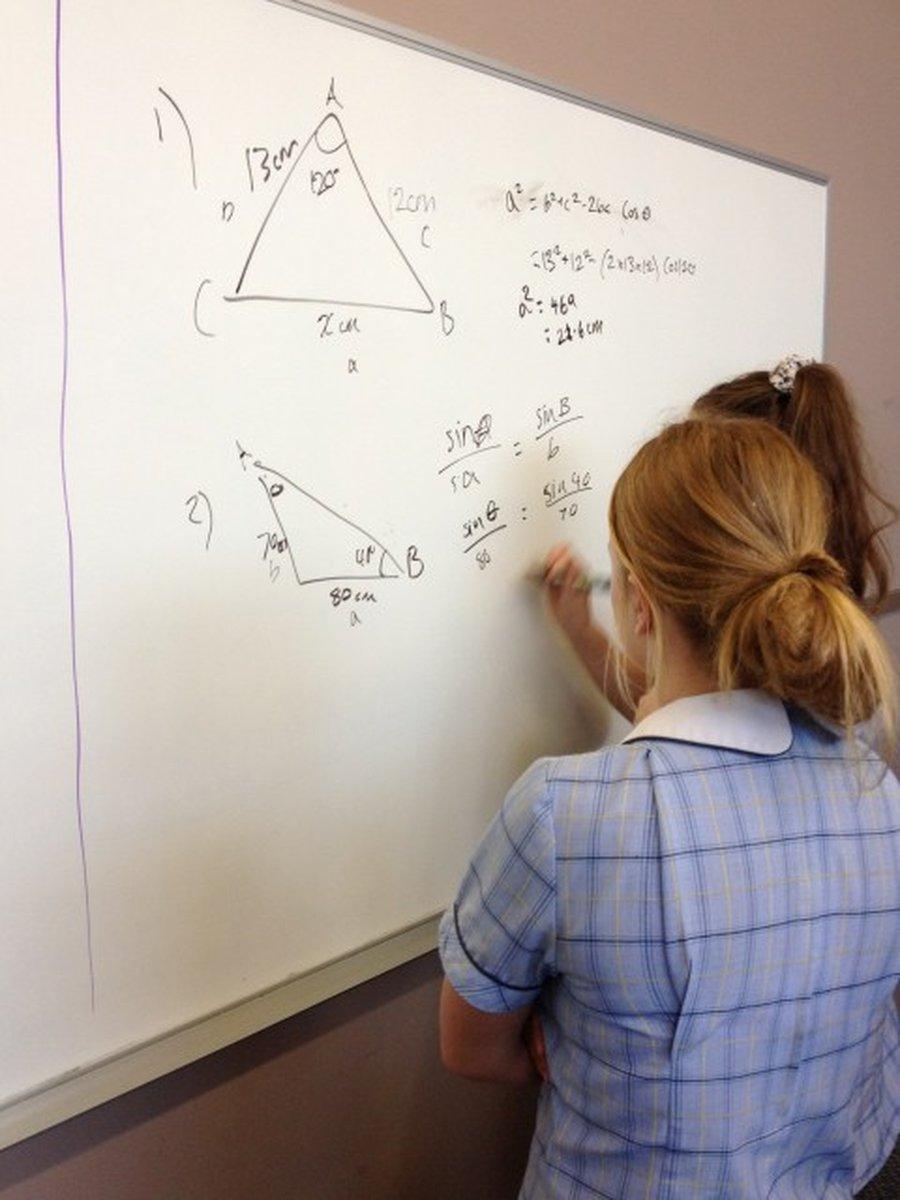 1)
A
13cm
120°
12cm
b
c
C
B
x cm
a
a² = b²+c²-2bc Cos θ
=13²+12²- (2x13x12) Cos120
a² = 469
= 21.6cm
2)
A
θ
70cm
b
40°
B
80cm
a
sinθ = sinB
a b
sinθ = sin 40
80 70